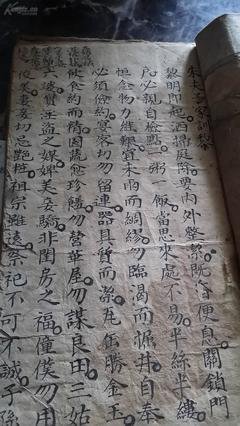 朱夫子家訓
黎明即起洒掃庭除要內外整潔既昏便息關鎖門
戶必親自檢點一粥一飯當思來處不易半絲半縷
恒念物力維艱宜未雨而綢繆勿臨渴而掘井自奉
必須儉約宴客切勿留連器具質而潔瓦缶勝金玉
飲食約而精園蔬愈珍饈勿營華屋勿謀良田三姑
六婆實淫盜之媒婢美妾嬌非閨房之福僮僕勿用
俊美妻妾切忌艷粧祖宗雖遠祭祀不可不誠子孫